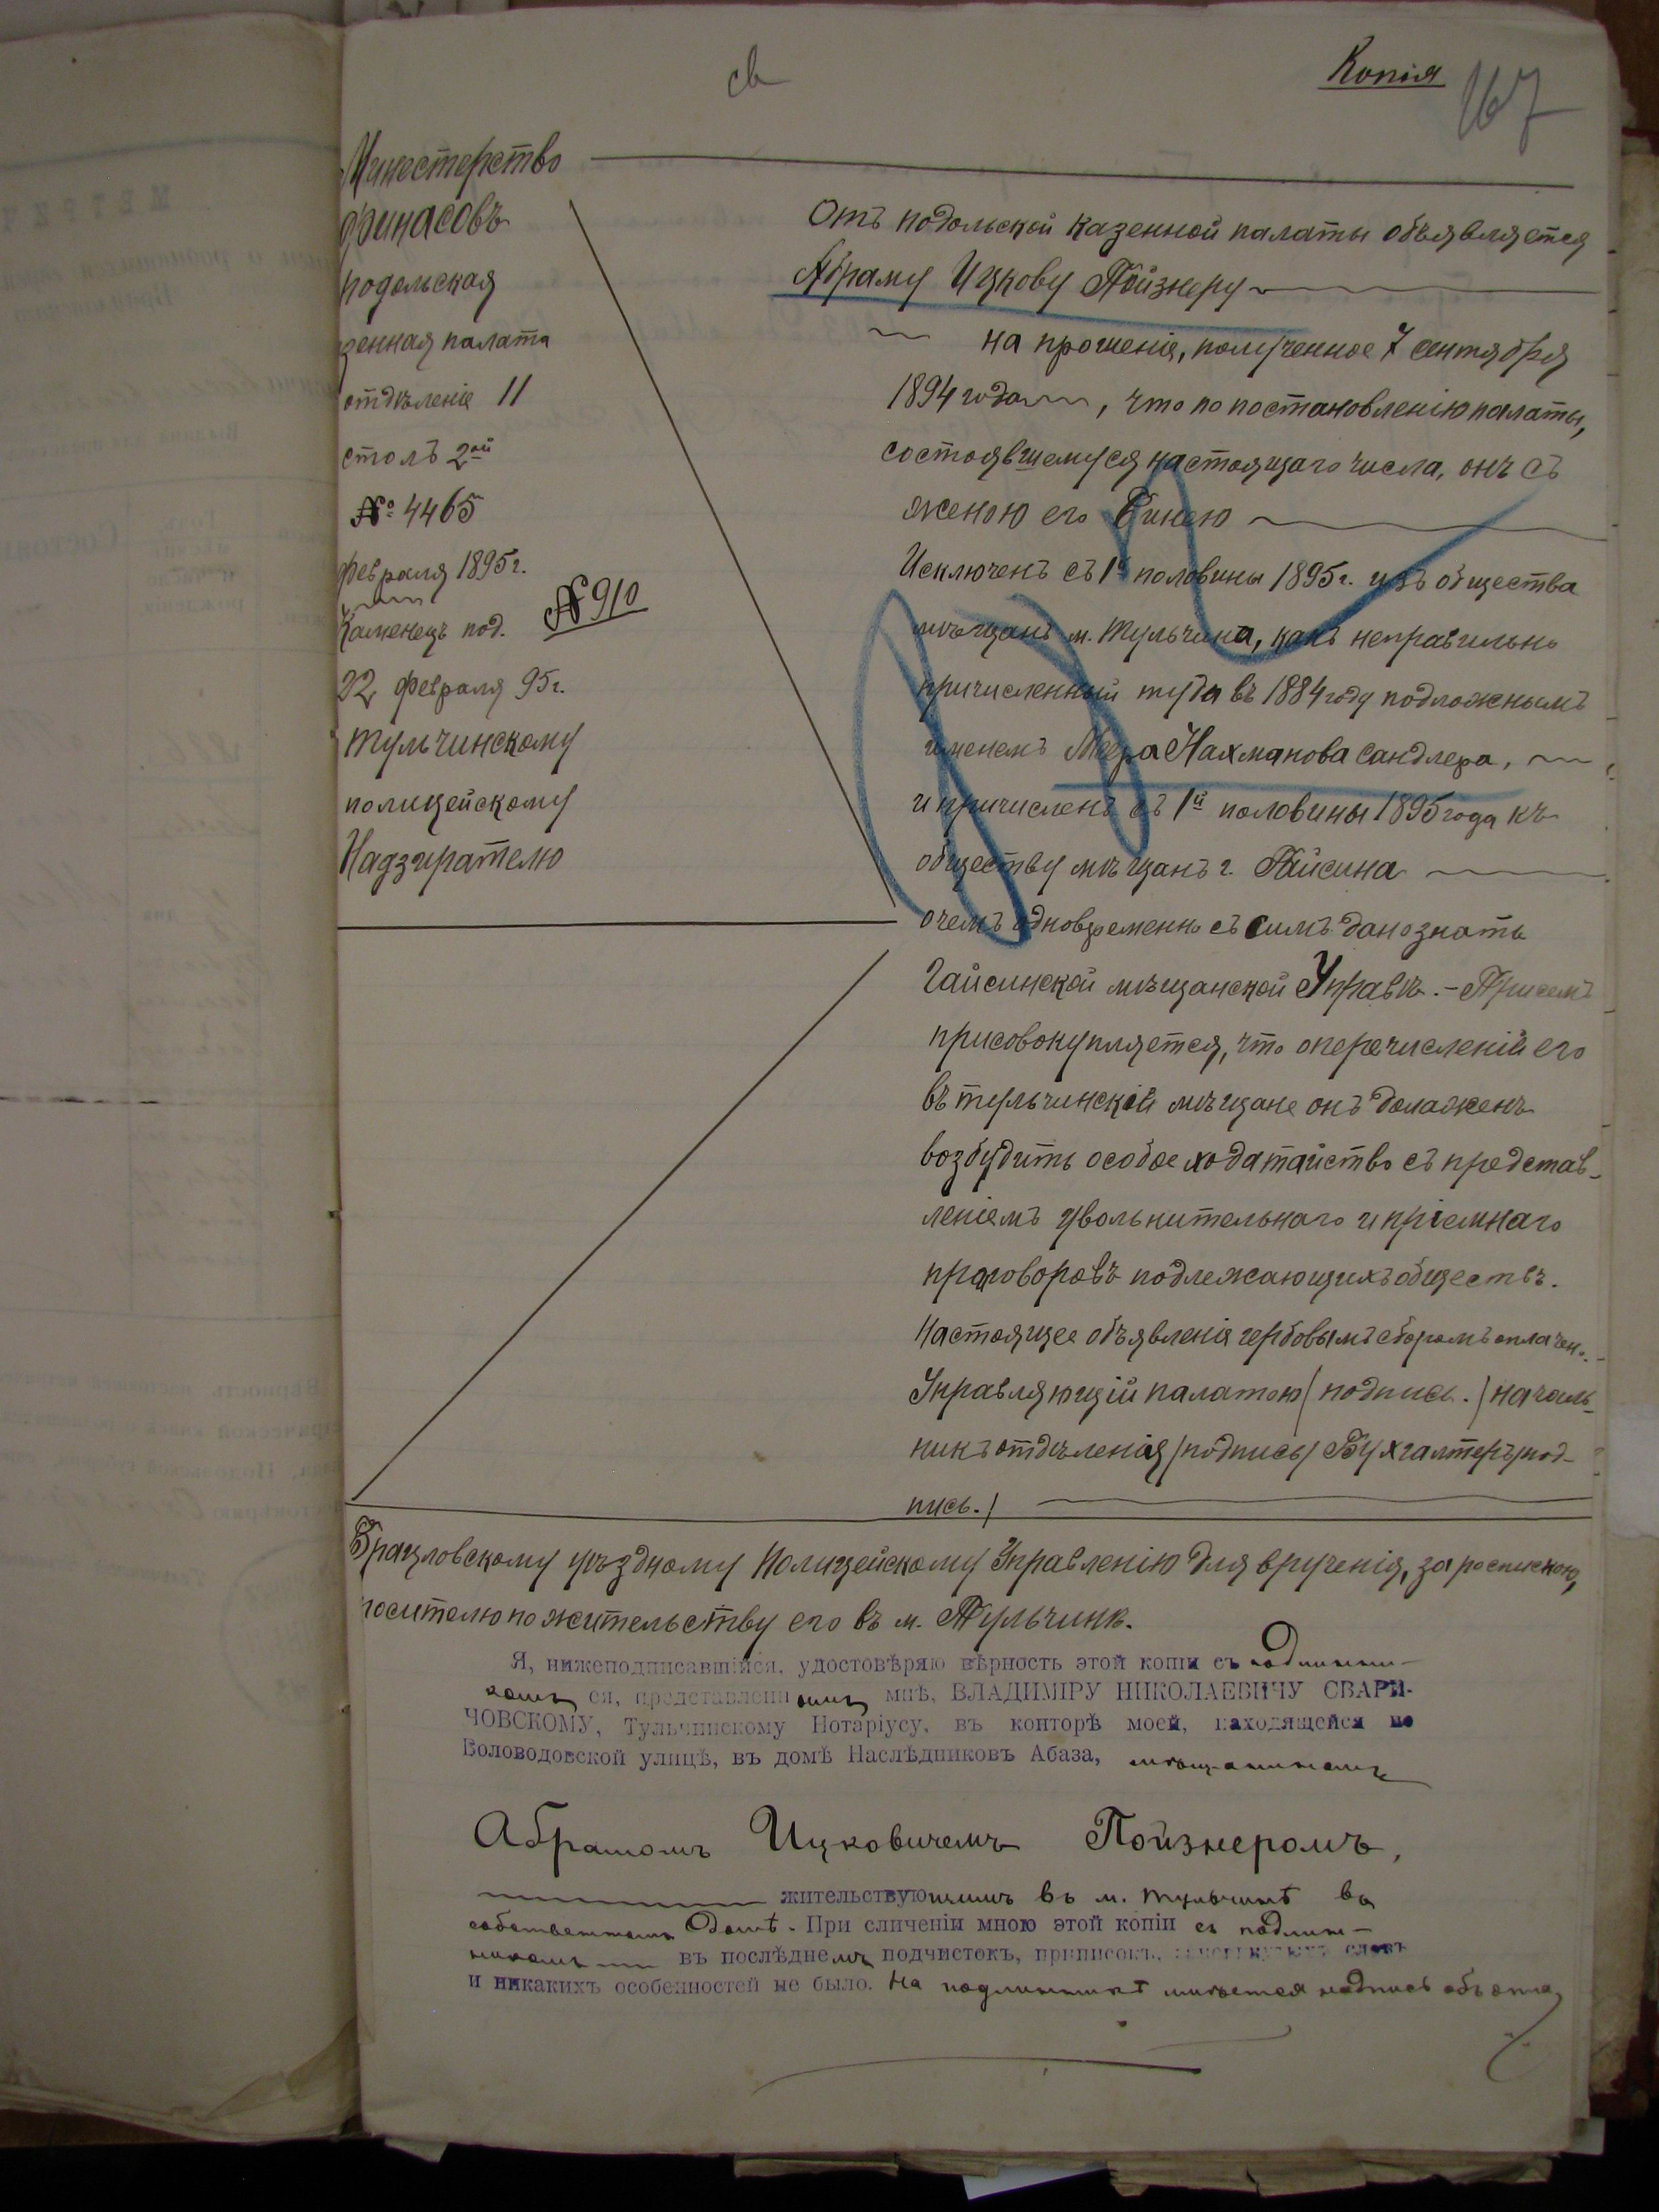 Копія
167
св
Министерство
финасовъ
подольская
зенная палата
отдѣленіе II
столъ 2ой
№ 4465
февраля 1895г.
№ 910
Каменецъ под.
22 февраля 95г.
тульчинскому
полицейскому
Надзирателю
Отъ подольской казенной палаты объявляется
Абраму Ицкову Пойзнеру
на прошеніе, полученное 7 сентября
1894 года, что по постановленію палаты,
состоявшемуся настоящаго числа, онъ съ
женою его Ринею
Исключенъ съ 1й половины 1895г. изъ общества
мѣщанъ м. Тульчина, какъ неправильно
причисленный туда въ 1884 году подложнымъ
именемъ Меера Нахманова Сандлера,
и причисленъ съ 1й половины 1895 года къ
обществу мѣщанъ г. Гайсина
о чемъ одновременно съ симъ дано знать
Гайсинской мѣщанской Управѣ. - Присемъ
присовокупляется, что о перечисленій его
въ тульчинскій мѣщане онъ долаженъ
возбудить особое ходатайство съ представ-
леніемъ увольнительнаго и пріемнаго
приговоровъ подлежающихъ обществъ.
Настоящее объявленія гербовымъ сборомъ оплачен.
Управляющій палатою /подпись./ началь-
никъ отдѣленія /подпись/ Бухгалтеръ /под-
пись./
Брацловскому уѣздному Полицейскому Управленію для врученія, за роспискою,
посителю по жительству его въ м. Тульчинѣ.
Я, нижеподписавшійся, удостовѣряю вѣрность этой копіи съ подлинни-
комъ ея, представленнымъ мнѣ, ВЛАДИМІРУ НИКОЛАЕВИЧУ СВАРИ-
ЧОВСКОМУ, Тульчинскому Нотаріусу, въ конторѣ моей, находящейся по
Воловодовской улицѣ, въ домѣ Наслѣдниковъ Абаза, мѣщаниномъ
Абрамомъ Ицковичемъ Пойзнеромъ,
жительствующимъ въ м. Тульчинѣ въ
собственномъ домѣ. При сличеніи мною этой копіи съ подлин-
никомъ въ послѣднемъ подчистокъ, приписокъ, зачеркнутыхъ словъ
и никакихъ особенностей не было. На подлинникѣ имѣется надпись объ опла